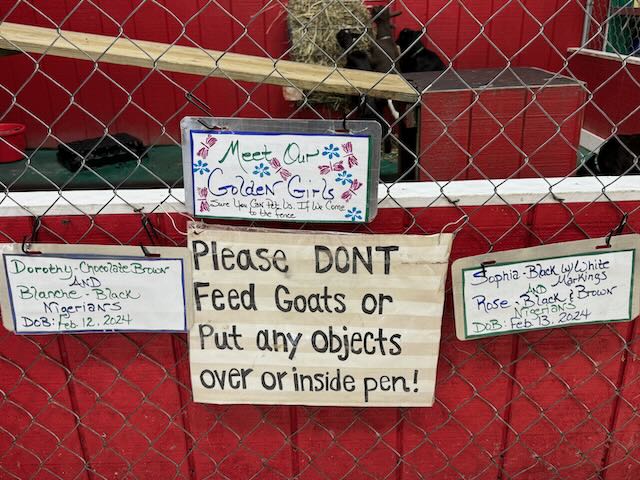 Meet Our
Golden Girls
Sure You Can Pet Us. If We Come
to the fence
Dorothy - Chocolate Brown
AND
Blanche - Black
Nigerians
DoB: Feb. 12, 2024
Please DONT
Feed Goats or
Put any objects
over or inside pen!
Sophia - Black w/ White
Markings
AND
Rose - Black & Brown
Nigerians
DoB: Feb. 13, 2024